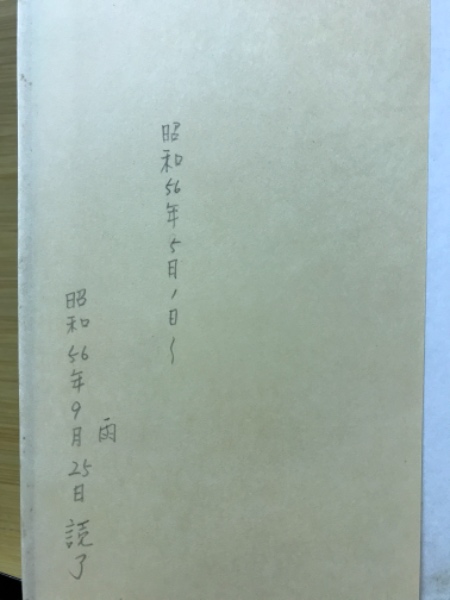 昭和56年5月1日〜
雨
昭和56年9月25日読了